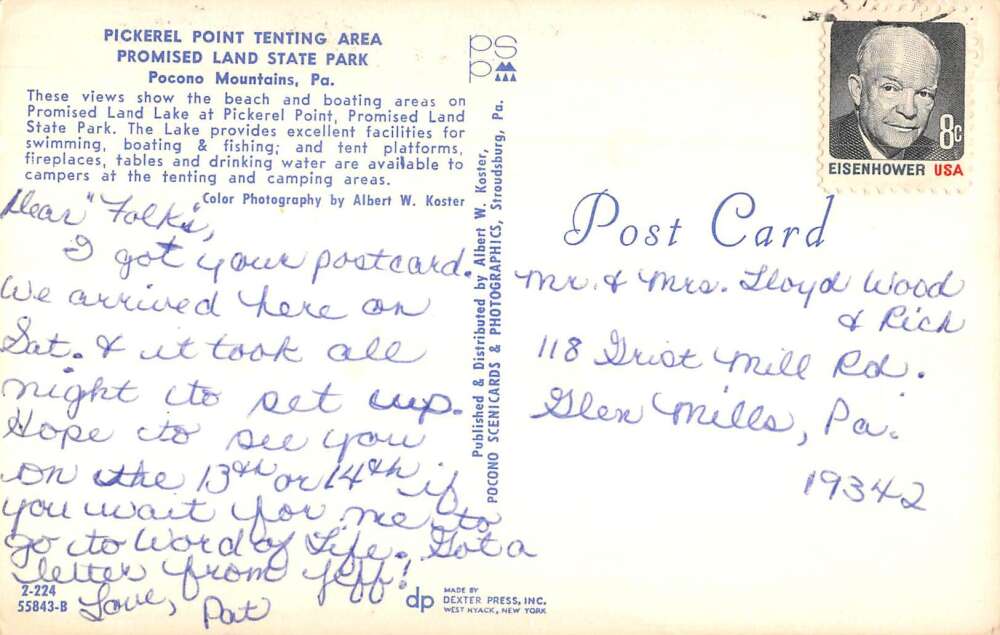 PICKEREL POINT TENTING AREA
PROMISED LAND STATE PARK
Pocono Mountains, Pa.
These views show the beach and boating areas on
Promised Land Lake at Pickerel Point, Promised Land
State Park. The Lake provides excellent facilities for
swimming, boating & fishing; and tent platforms,
fireplaces, tables and drinking water are available to
campers at the tenting and camping areas.
Color Photography by Albert W. Koster
Dear "Folks",
I got your postcard.
We arrived here on
Sat. & it took all
night to set up.
Hope to see you
on the 13th or 14th if
you wait for me to
go to Word of Life. Got a
letter from Jeff!
Love, Pat
2-224
55843-B
PSPP
Published & Distributed by Albert W. Koster,
POCONO SCENICARDS & PHOTOGRAPHICS, Stroudsburg, Pa.
dp
MADE BY
DEXTER PRESS, INC.
WEST NYACK, NEW YORK
8c
EISENHOWER USA
Post Card
Mr. & Mrs. Lloyd Wood
& Rich
118 Grist Mill Rd.
Glen Mills, Pa.
19342